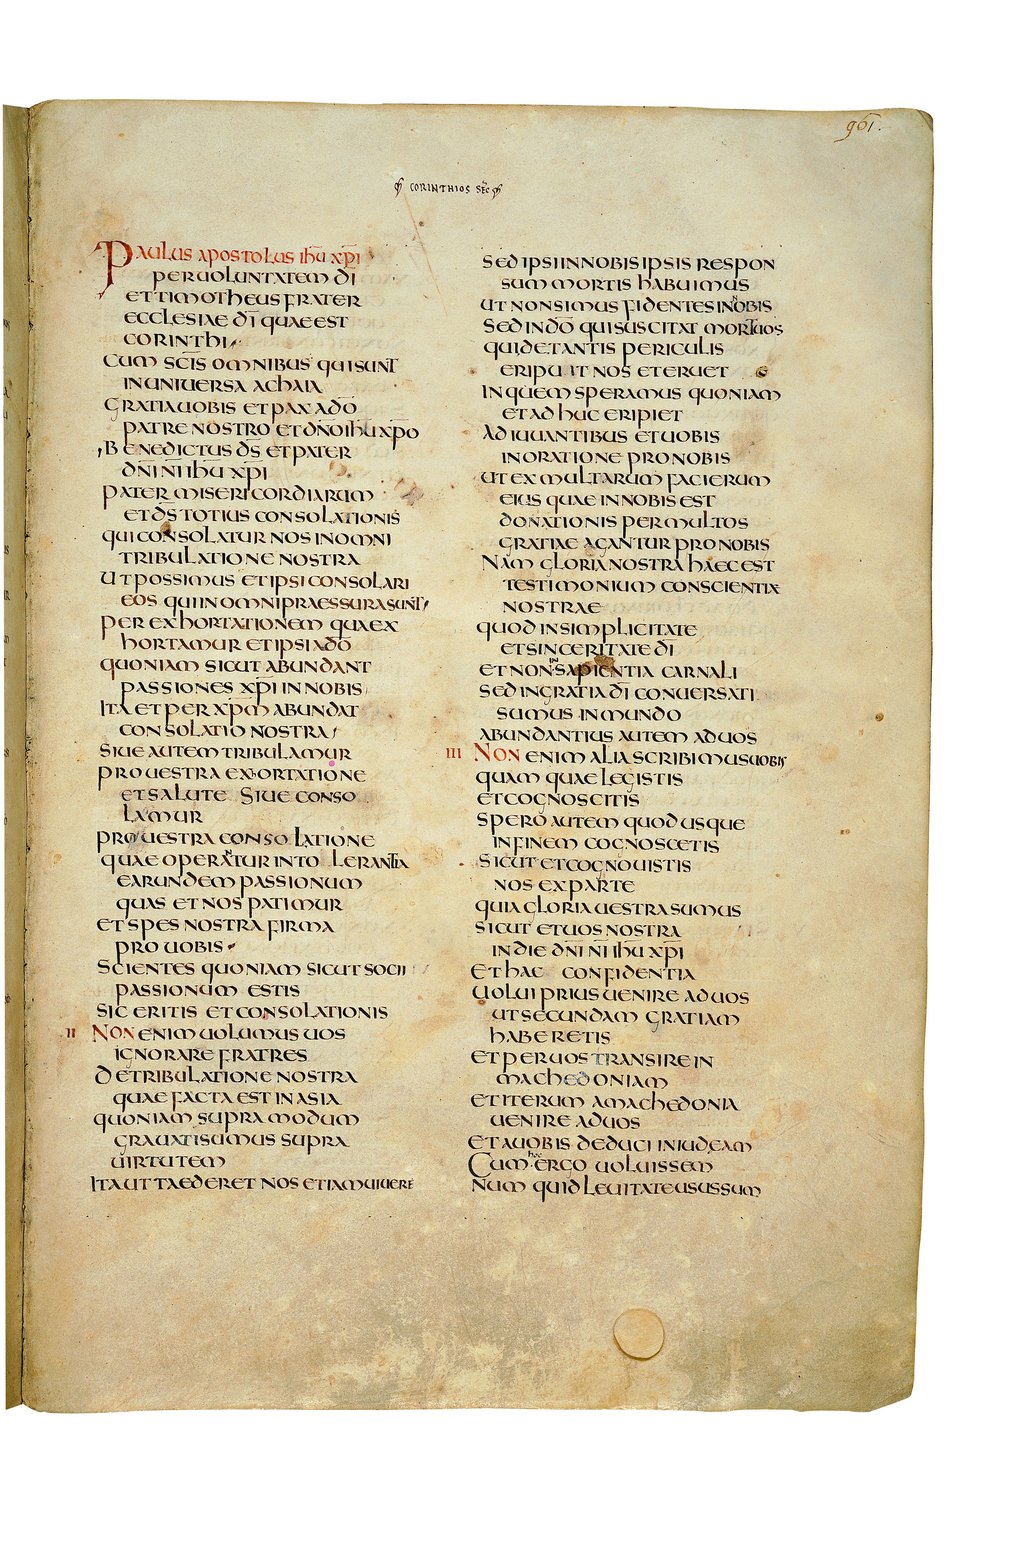 961.
CORINTHIOS SEC
PAULUS APOSTOLUS IHU XPI
PER UOLUNTATEM DI
ET TIMOTHEUS FRATER
ECCLESIAE DI QUAE EST
CORINTHI
CUM SCIS OMNIBUS QUI SUNT
IN UNIUERSA ACHAIA
GRATIA UOBIS ET PAX A DO
PATRE NOSTRO ET DNO IHU XPO
BENEDICTUS DS ET PATER
DNI NI IHU XPI
PATER MISERICORDIARUM
ET DS TOTIUS CONSOLATIONIS
QUI CONSOLATUR NOS IN OMNI
TRIBULATIONE NOSTRA
UT POSSIMUS ET IPSI CONSOLARI
EOS QUI IN OMNI PRAESSURA SUNT
PER EXHORTATIONEM QUA EX
HORTAMUR ET IPSI A DO
QUONIAM SICUT ABUNDANT
PASSIONES XPI IN NOBIS
ITA ET PER XPM ABUNDAT
CONSOLATIO NOSTRA
SIUE AUTEM TRIBULAMUR
PRO UESTRA EXORTATIONE
ET SALUTE SIUE CONSO
LAMUR
PRO UESTRA CONSOLATIONE
QUAE OPERATUR IN TOLERANTIA
EARUNDEM PASSIONUM
QUAS ET NOS PATIMUR
ET SPES NOSTRA FIRMA
PRO UOBIS
SCIENTES QUONIAM SICUT SOCII
PASSIONUM ESTIS
SIC ERITIS ET CONSOLATIONIS
II NON ENIM UOLUMUS UOS
IGNORARE FRATRES
DE TRIBULATIONE NOSTRA
QUAE FACTA EST IN ASIA
QUONIAM SUPRA MODUM
GRAUATI SUMUS SUPRA
UIRTUTEM
ITA UT TAEDERET NOS ETIAM UIUERE
SED IPSI IN NOBIS IPSIS RESPON
SUM MORTIS HABUIMUS
UT NON SIMUS FIDENTES IN NOBIS
SED IN DO QUI SUSCITAT MORTUOS
QUI DE TANTIS PERICULIS
ERIPUIT NOS ET ERUET
IN QUEM SPERAMUS QUONIAM
ET ADHUC ERIPIET
ADIUUANTIBUS ET UOBIS
IN ORATIONE PRO NOBIS
UT EX MULTARUM FACIERUM
EIUS QUAE IN NOBIS EST
DONATIONIS PER MULTOS
GRATIAE AGANTUR PRO NOBIS
NAM GLORIA NOSTRA HAEC EST
TESTIMONIUM CONSCIENTIAE
NOSTRAE
QUOD IN SIMPLICITATE
ET SINCERITATE DI
ET NON IN SAPIENTIA CARNALI
SED IN GRATIA DI CONUERSATI
SUMUS IN MUNDO
ABUNDANTIUS AUTEM AD UOS
III NON ENIM ALIA SCRIBIMUS UOBIS
QUAM QUAE LEGISTIS
ET COGNOSCITIS
SPERO AUTEM QUOD USQUE
IN FINEM COGNOSCETIS
SICUT ET COGNOUISTIS
NOS EX PARTE
QUIA GLORIA UESTRA SUMUS
SICUT ET UOS NOSTRA
IN DIE DNI NI IHU XPI
ET HAC CONFIDENTIA
UOLUI PRIUS UENIRE AD UOS
UT SECUNDAM GRATIAM
HABERETIS
ET PER UOS TRANSIRE IN
MACHEDONIAM
ET ITERUM A MACHEDONIA
UENIRE AD UOS
ET A UOBIS DEDUCI IN IUDEAM
CUM hoc ERGO UOLUISSEM
NUM QUID LEUITATE USUS SUM